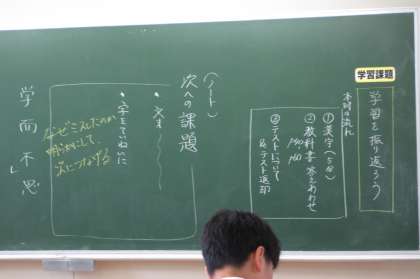 学習課題
学習を振り返ろう
本時の流れ
①漢字(5分)
②教科書 答えあわせ
③テストについて
& テスト返却
(ノート)
次への課題
・文
・字をていねいに
なぜミスしたのか
明らかにして、
次につなげる
学而不思